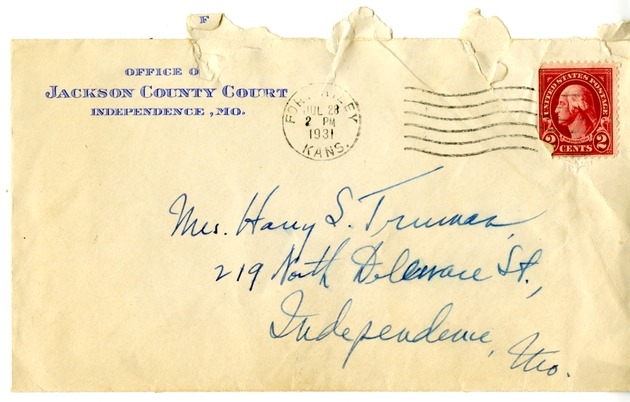 F
OFFICE O
JACKSON COUNTY COURT
INDEPENDENCE, MO.
FORT RILEY
JUL 28
2 PM
1931
KANS.
UNITED STATES POSTAGE
2 CENTS 2
Mrs. Harry S. Truman,
219 North Delaware St.,
Independence, Mo.